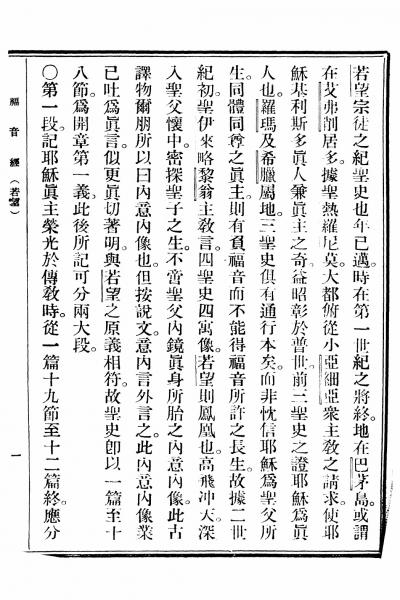 若望宗徒之紀聖史也年已邁。時在第一世紀之將終。地在巴茅島。或謂
在艾弗削居多。據聖熱羅尼莫。大都俯從小亞細亞衆主教之請求。使耶
穌基利斯多眞人兼眞主之奇益昭彰於普世。前三聖史之證耶穌爲眞
人也。羅瑪及希臘屬地。三聖史俱有通行本矣。而非忱信耶穌爲聖父所
生。同體同尊之眞主。則有負福音。而不能得福音所許之長生。故據二世
紀初聖伊來略黎翁主教言。四聖史四寓像。若望則鳳凰也。高飛冲天。深
入聖父懷中。密探聖子之生。不啻聖父內鏡眞身所胎之內意內像。此古
譯物爾朋所以曰內意內像也。但按說文。意內言外言之。此內意內像業
已吐爲眞言。似更眞切著明。與若望之原義相符。故聖史卽以一篇至十
八節。爲開章第一義。此後所記可分兩大段。
〇第一段。記耶穌眞主榮光於傳教時。從一篇十九節至十二篇終。應分
福音經（若望）
一